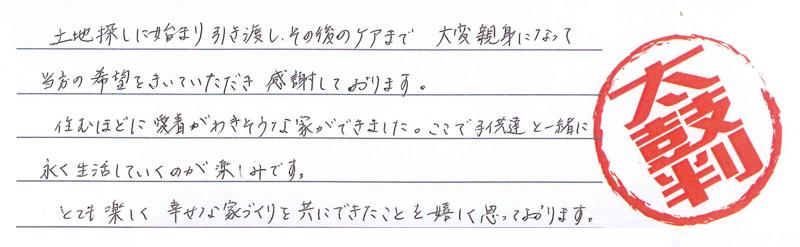 土地探しに始まり引き渡し、その後のケアまで 大変親身になって
当方の希望をきいていただき 感謝しております。
住むほどに愛着がわきそうな家ができました。ここで子供達と一緒に
永く生活していくのが楽しみです。
とても楽しく 幸せな家づくりを共にできたことを嬉しく思っております。
太鼓判